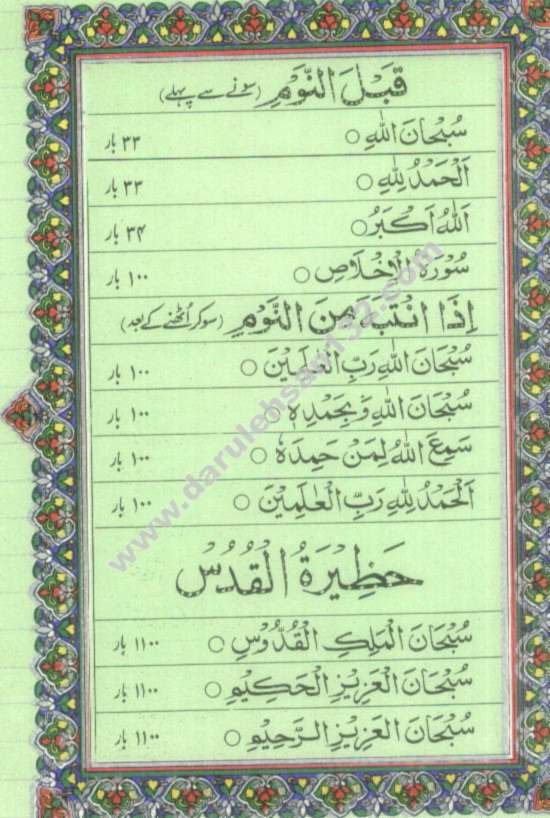 قَبْلَ النَّوْمِ (سونے سے پہلے)
سُبْحَانَ اللّٰهِ ○ ۳۳ بار
اَلْحَمْدُ لِلّٰهِ ○ ۳۳ بار
اَللّٰهُ اَكْبَرُ ○ ۳۴ بار
سُوْرَةُ الْاِخْلَاصِ ○ ۱۰۰ بار
اِذَا انْتَبَهَ مِنَ النَّوْمِ (سو کر اُٹھنے کے بعد)
سُبْحَانَ اللّٰهِ رَبِّ الْعٰلَمِيْنَ ○ ۱۰۰ بار
سُبْحَانَ اللّٰهِ وَ بِحَمْدِهٖ ○ ۱۰۰ بار
سَمِعَ اللّٰهُ لِمَنْ حَمِدَهٗ ○ ۱۰۰ بار
اَلْحَمْدُ لِلّٰهِ رَبِّ الْعٰلَمِيْنَ ○ ۱۰۰ بار
حَظِيْرَةُ الْقُدُسْ
سُبْحَانَ الْمَلِكِ الْقُدُّوْسِ ○ ۱۱۰۰ بار
سُبْحَانَ الْعَزِيْزِ الْحَكِيْمِ ○ ۱۱۰۰ بار
سُبْحَانَ الْعَزِيْزِ الرَّحِيْمِ ○ ۱۱۰۰ بار